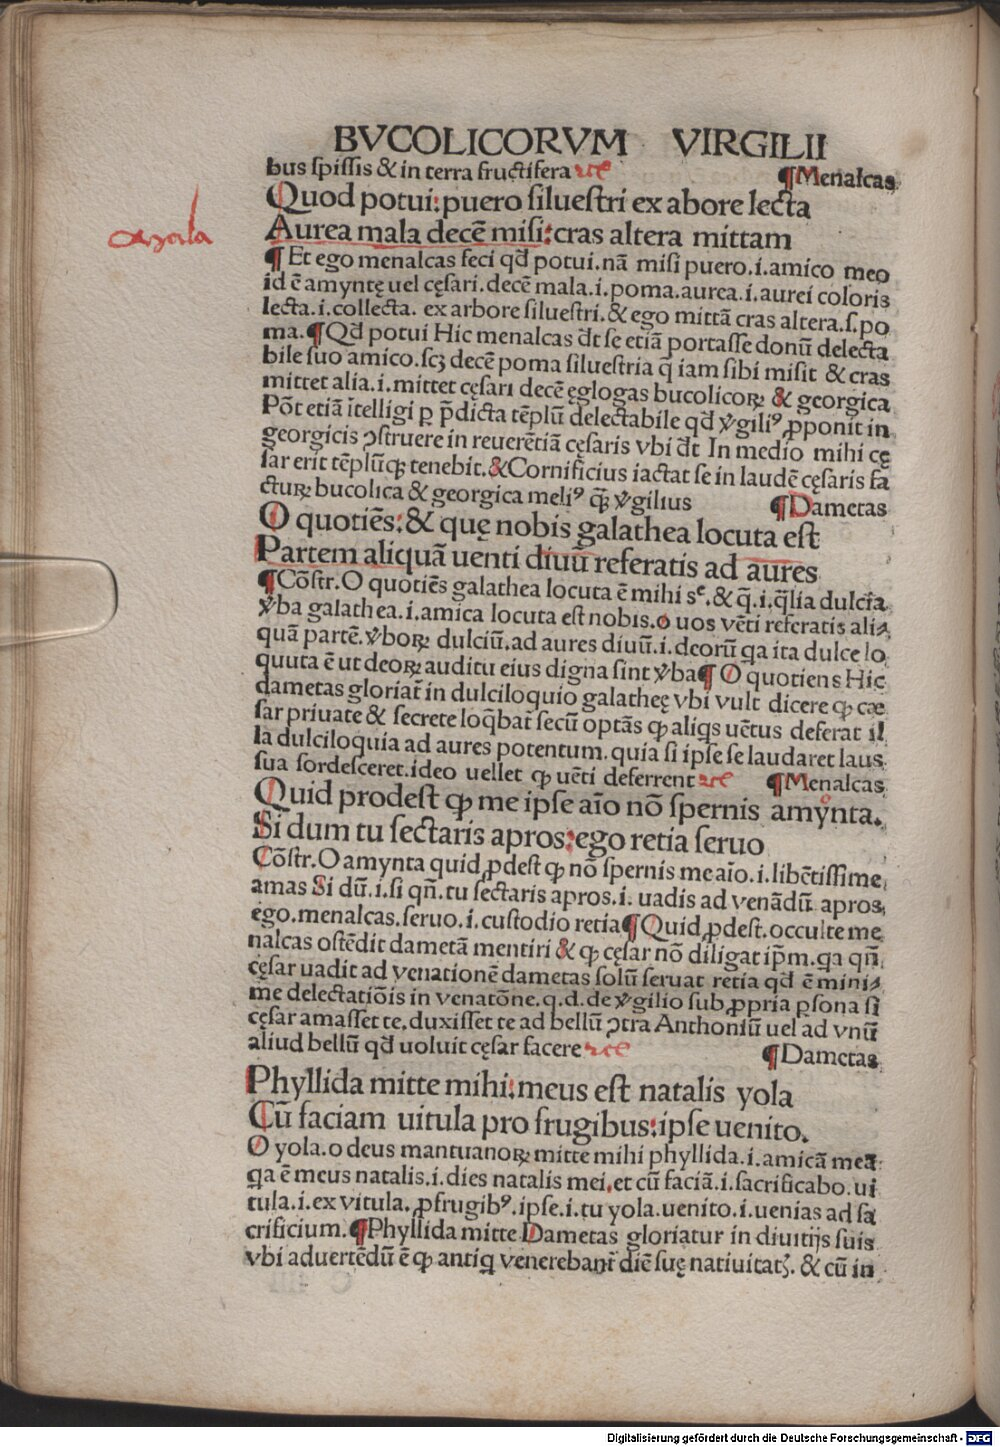 BVCOLICORVM VIRGILII
bus ſpiſſis & in terra fructifera ⁊cͤ ¶Menalcas
Quod potui: puero ſilueſtri ex abore lecta
Aurea mala decē miſi: cras altera mittam
¶ Et ego menalcas feci qđ potui. nā miſi puero .i. amico meo
id ē amyntę uel cęſari. decē mala .i. poma. aurea .i. aurei coloris
lecta .i. collecta. ex arbore ſilueſtri. & ego mittā cras altera .ſ. po
ma. ¶Qđ potui Hic menalcas đt ſe etiā portaſſe donū delecta
bile ſuo amico. ſcꝫ decē poma ſilueſtria q̄ iam ſibi miſit & cras
mittet alia .i. mittet cęſari decē ęglogas bucolicoꝝ & georgica
Pōt etiā ītelligi ꝑ p̄dicta tēplū delectabile qđ v̓giliꝰ ꝓponit in
georgicis ꝯſtruere in reuerētiā cęſaris vbi đt In medio mihi cę
ſar erit tēplūqꝫ tenebit. & Cornificius iactat ſe in laudē cęſaris fa
cturꝝ bucolica & georgica meliꝰ ꝙ̄ v̓gilius ¶Dametas
O quotiēs: & quę nobis galathea locuta eſt
Partem aliquā uenti diuū referatis ad aures
¶Cōſtr. O quotiēs galathea locuta ē mihi sᵉ. & q̄ .i. q̄lia dulcia
v̓ba galathea .i. amica locuta eſt nobis. o uos vēti referatis ali⸗
quā partē. v̓boꝝ dulciū. ad aures diuū .i. deorū qa ita dulce lo
quuta ē ut deoꝝ auditu eius digna ſint v̓ba ¶ O quotiens Hic
dametas gloriat̄ in dulciloquio galatheę vbi vult dicere ꝙ cæ
ſar priuate & ſecrete loq̄bat̄ ſecū optās ꝙ aliqs uētus deferat il
la dulciloquia ad aures potentum. quia ſi ipſe ſe laudaret laus
ſua ſordeſceret. ideo uellet ꝙ uēti deferrent ⁊cͤ ¶Menalcas
Quid prodeſt ꝙ me ipſe aīo nō ſpernis amynta.
Si dum tu ſectaris apros: ego retia ſeruo
Cōſtr. O amynta quid ꝓdeſt ꝙ nō ſpernis me aīo .i. libētiſſime
amas Si dū .i. ſi qn̄. tu ſectaris apros .i. uadis ad venādū apros
ego. menalcas. ſeruo .i. cuſtodio retia ¶Quid ꝓdeſt. occulte me
nalcas oſtēdit dametā mentiri & ꝙ cęſar nō diligat ip̄m. qa qn̄
cęſar uadit ad venationē dametas ſolū ſeruat retia qđ ē mini⸗
me delectatiōis in venatōne. q.d. de v̓gilio ſub ꝓpria ꝑſona ſi
cęſar amaſſet te. duxiſſet te ad bellū ꝯtra Anthoniū uel ad vnū
aliud bellū qđ uoluit cęſar facere ⁊cͤ ¶Dametas
Phyllida mitte mihi: meus eſt natalis yola
Cū faciam uitula pro frugibus: ipſe uenito.
O yola. o deus mantuanoꝝ mitte mihi phyllida .i. amicā meā:
qa ē meus natalis .i. dies natalis mei. et cū faciā .i. ſacrificabo. ui
tula .i. ex vitula. ꝓ frugibꝰ. ipſe .i. tu yola. uenito .i. uenias ad ſa
crificium. ¶Phyllida mitte Dametas gloriatur in diuitijs ſuis
vbi aduertēdū ē ꝙ antiq venerebant̄ diē ſuę natiuitatꝭ. & cū in
Digitalisierung gefördert durch die Deutsche Forschungsgemeinschaft - DFG